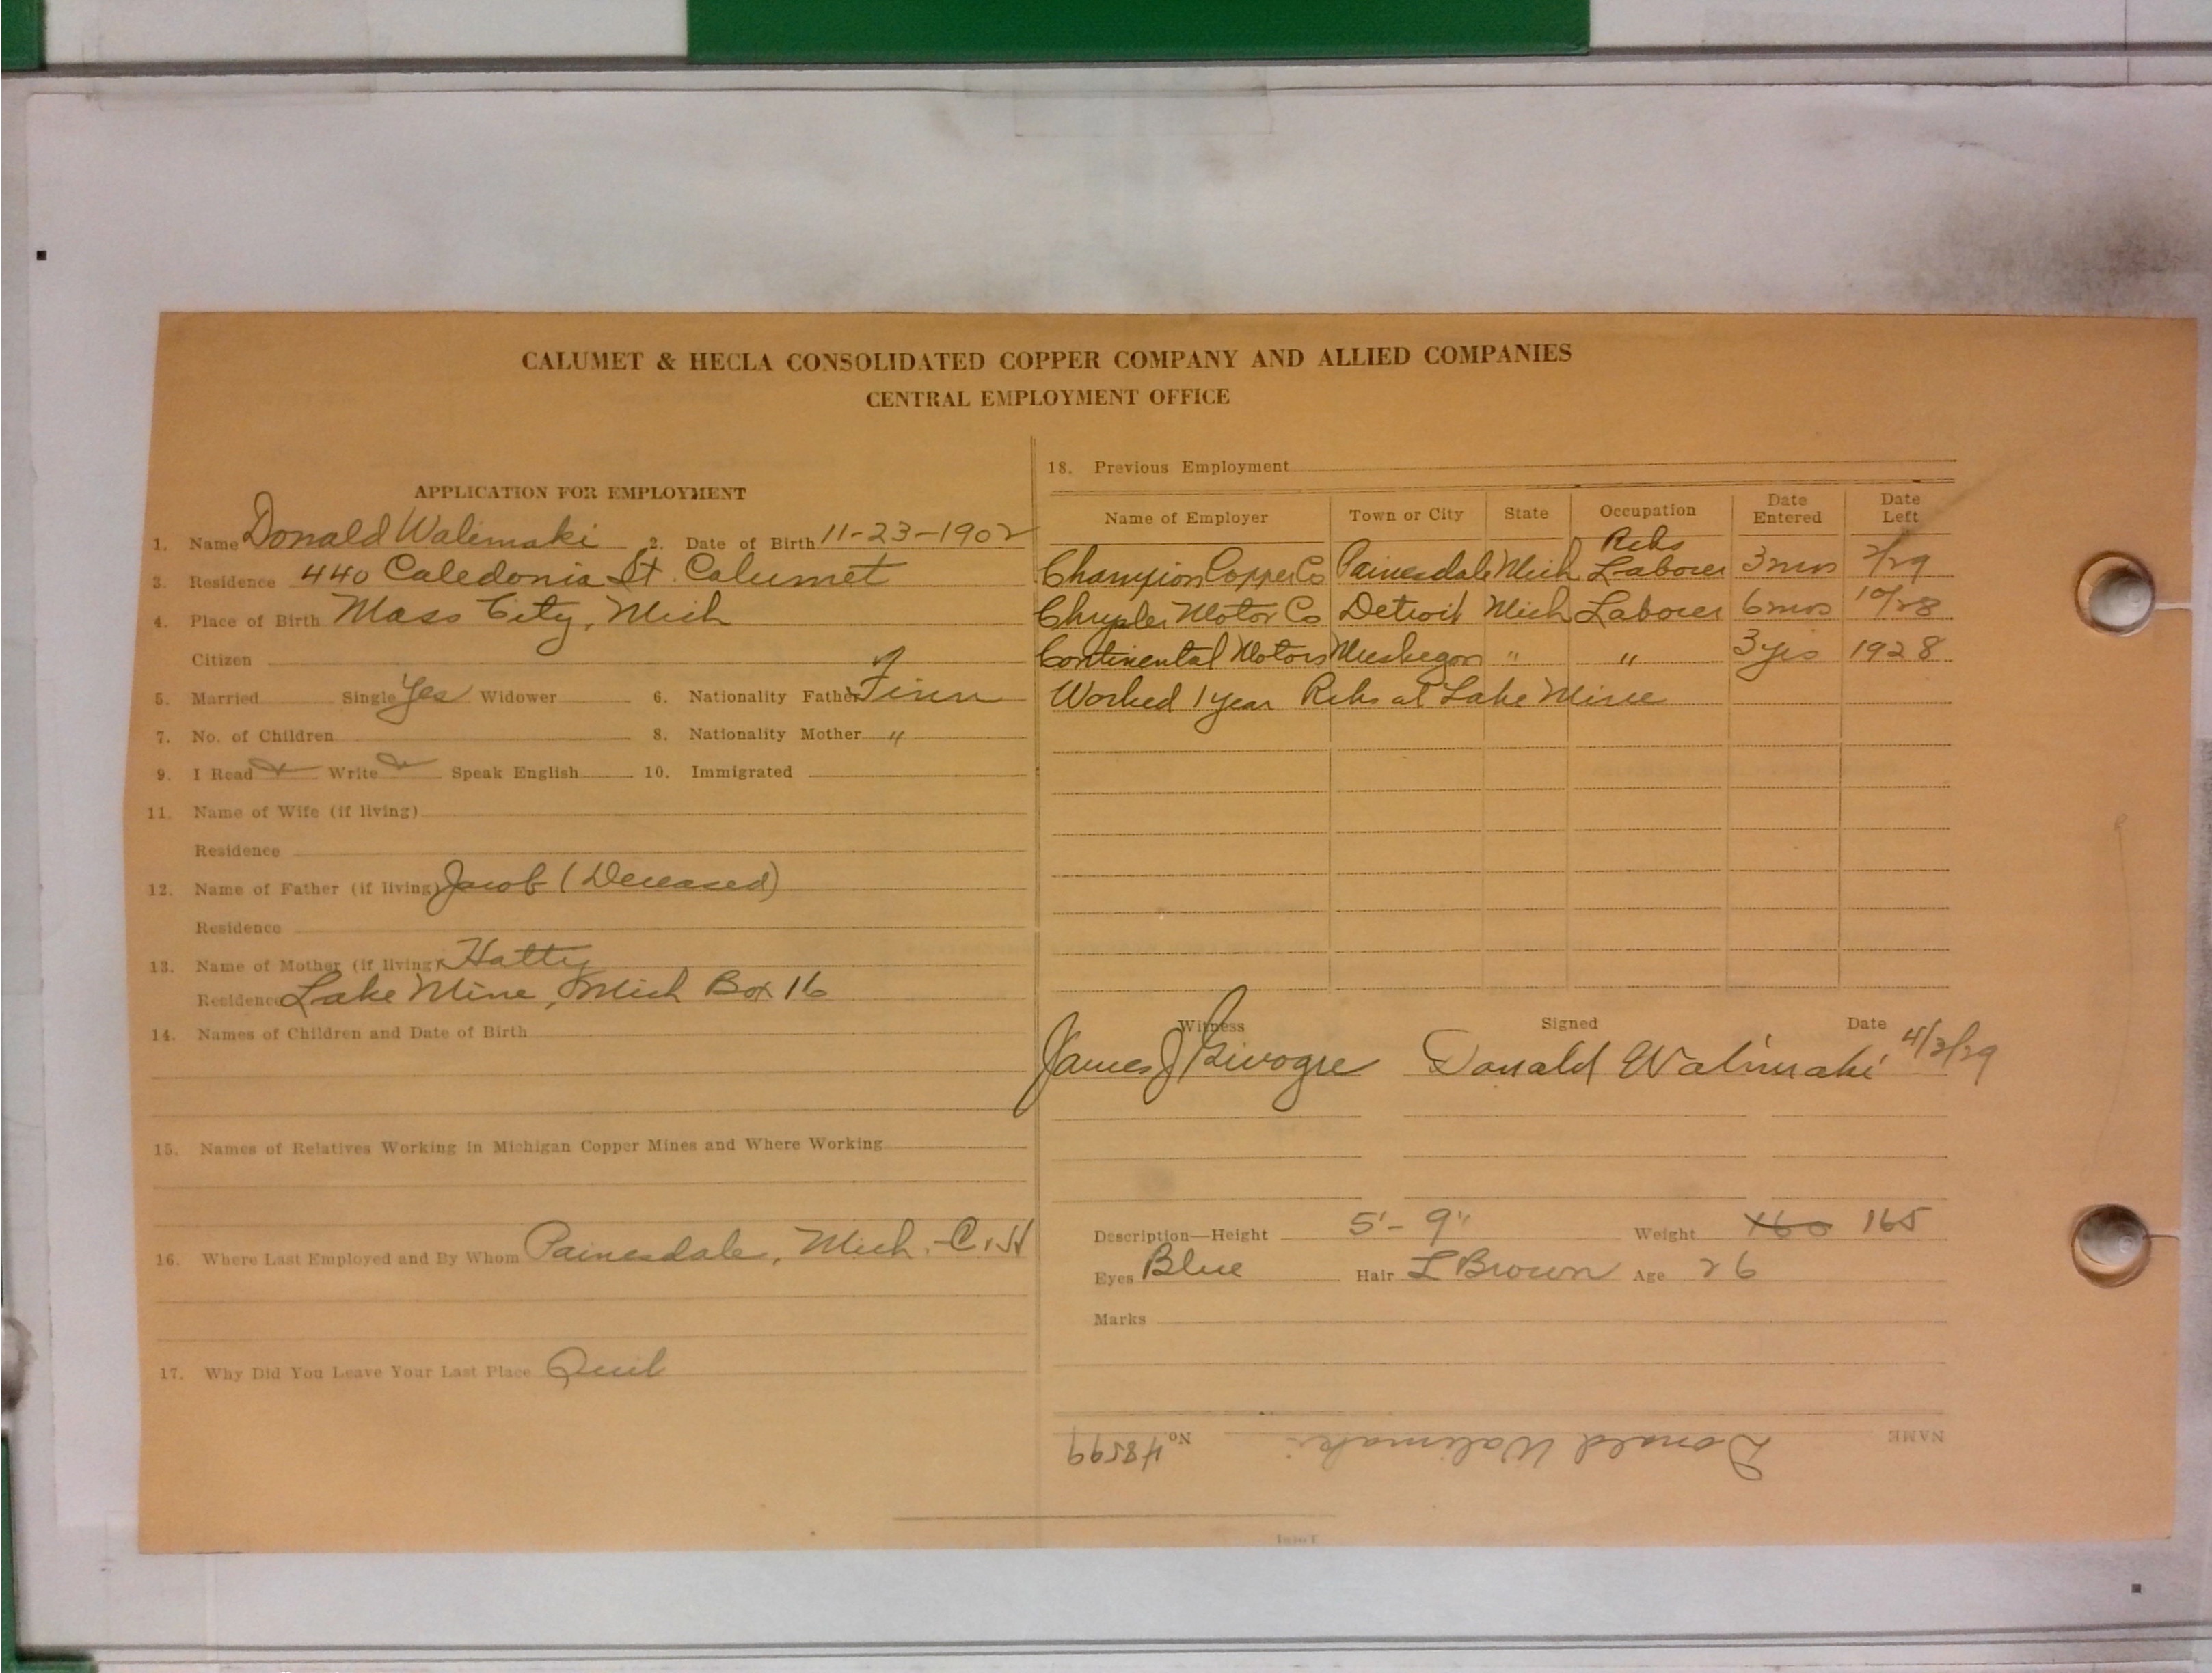 CALUMET & HECLA CONSOLIDATED COPPER COMPANY AND ALLIED COMPANIES
CENTRAL EMPLOYMENT OFFICE
APPLICATION FOR EMPLOYMENT
1. Name Donald Walimaki 2. Date of Birth 11-23-1902
3. Residence 440 Caledonia St. Calumet
4. Place of Birth Mass City, Mich
Citizen
5. Married Single Yes Widower 6. Nationality Father Finn
7. No. of Children 8. Nationality Mother "
9. I Read Write Speak English 10. Immigrated
11. Name of Wife (if living)
Residence
12. Name of Father (if living) Jacob (Deceased)
Residence
13. Name of Mother (if living) Hatty
Residence Lake Mine, Mich Box 16
14. Names of Children and Date of Birth
15. Names of Relatives Working in Michigan Copper Mines and Where Working
16. Where Last Employed and By Whom Painesdale, Mich.
17. Why Did You Leave Your Last Place Quit
18. Previous Employment
Name of Employer Town or City State Occupation Date Entered Date Left
Champion Copper Co Painesdale Mich Laborer 3 mos 2/29
Chrysler Motor Co Detroit Mich Laborer 6 mos 10/28
Continental Motors Muskegon " " 3 yrs 1928
Worked 1 year at Lake Mine
Witness Signed Date
James J Donald Walimaki 4/3/29
Description—Height 5'-9" Weight 160 165
Eyes Blue Hair L Brown Age 26
Marks
NAME Donald Walimaki No 48599